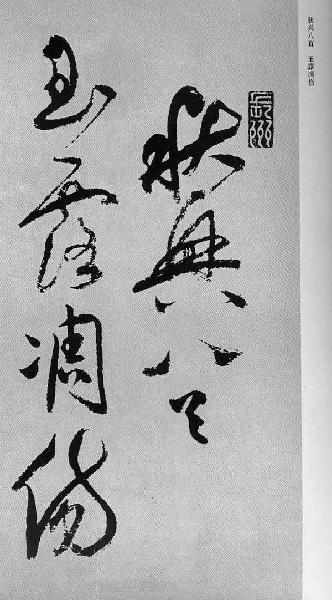 秋興八首 玉露凋傷
秋興八首
玉露凋傷